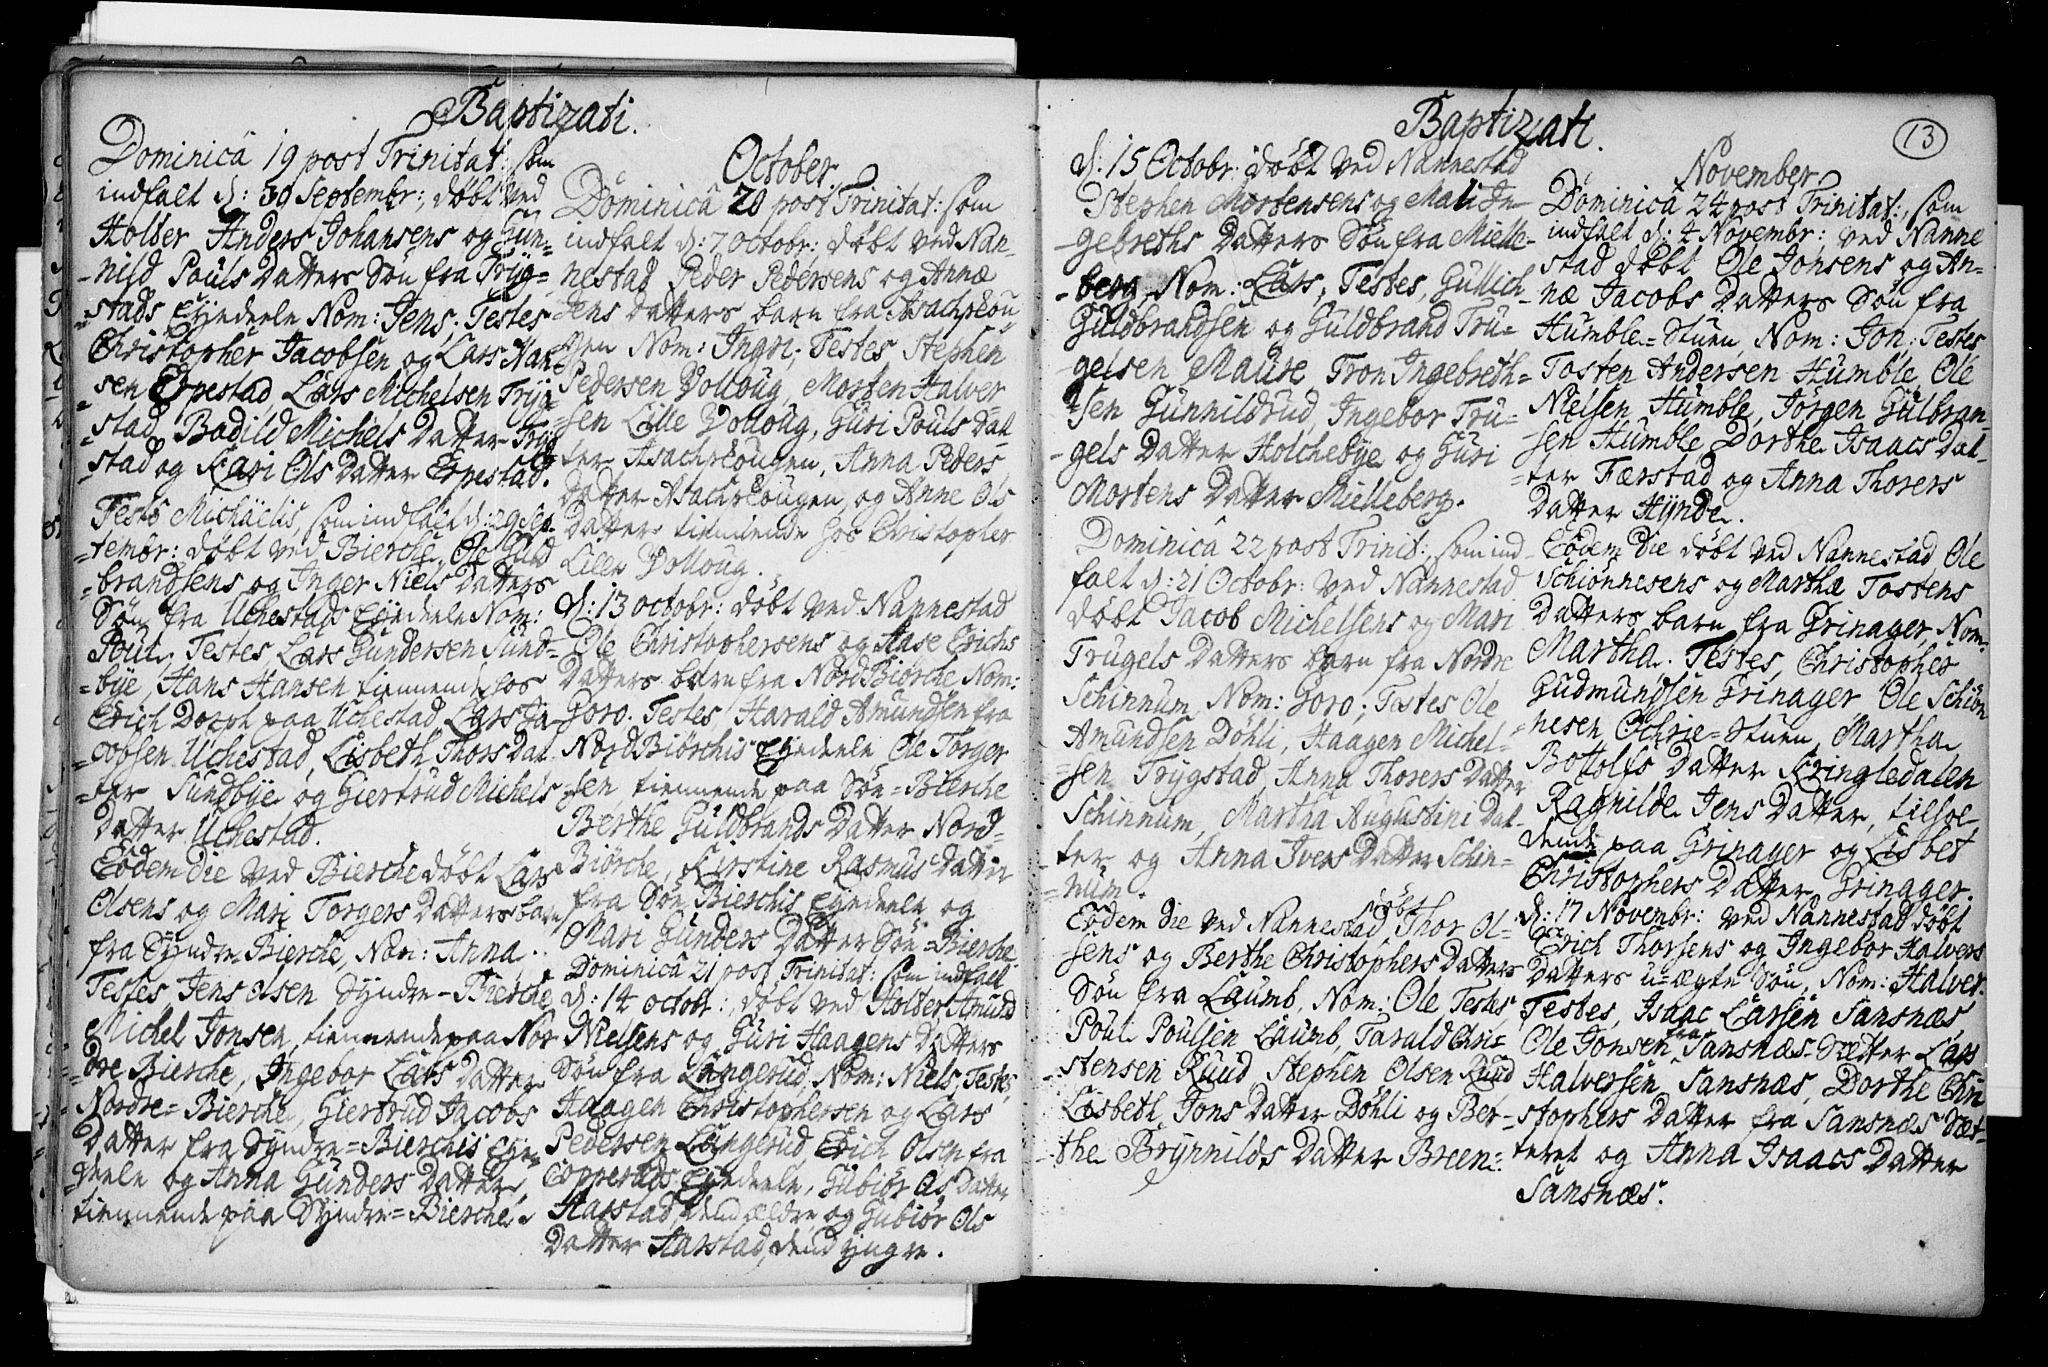 Baptizati.
Dominicâ 19 post Trinitat: som
indfalt d: 30 Septembr:, døbt ved
Holter Anders Johansens og Gun-
-nild Pouls Datters Søn fra Tryg-
-stads Eyedeele Nom: Jens. Testes
Christopher Jacobsen og Lars Han-
sen Erpestad Lars Michelsen Tryg-
-stad, Bodild Michels Datter Tryg-
stad og Kari Ols Datter Erpestad.
Festo Michaëlis, som indfalt d: 29 Sep-
-tembr: døbt ved Bierche, Ole Guld
-brandsens og Inger Niels Datters
Søn fra Uchestads Eyedeele Nom:
Poul. Testes, Lars Gundersen Sund-
-bye, Hans Hansen tiennende hos
Erich Dorph paa Uchestad, Lars Ja-
cobsen Uchestad, Lisbeth Thors Dat
-ter Sundbye og Giertrud Michels
Datter Uchestad.
Eodem die ved Bierche døbt Lars
Olsens og Mari Torgers Datters barn
fra Syndre Bierche, Nom: Anna.
Testes Jens Olsen Syndre-Bierche
Michel Jonsen, tiennende paa Nor
-dre Bierche, Ingebor Lars Datter
Nordre-Bierche, Giertrud Jacobs
Datter fra Syndre-Bierchis Eye-
deele og Anna Gunders Datter,
tiennende paa Syndre-Bierche.
October.
Dominicâ 20 post Trinitat: som
indfalt d: 7 octobr: døbt ved Nan-
nestad Peder Pedersens og Annæ
Jens Datters barn fra Asachschou
gen Nom: Ingri; Testes Stephen
Pedersen Volloug, Morten Halver
-sen Lille Volloug, Guri Pouls Dat
ter Asachschougen, Anna Peders
Datter Asachschougen, og Anne Ols
Datter tiennende hos Christopher
Lille Volloug.
d: 13 octobr: døbt ved Nannestad
Ole Christophersens og Aase Erichs
Datters barn fra Nord Biørche Nom:
Goro. Testes Harald Amundsen fra
Nord Biørchis Eyedeele, Ole Torger
-sen, tiennende paa Søn-Bierche
Berthe Guldbrands Datter Nord-
Biørche, Kirstine Rasmus Datter
fra Søn Bierchis Eyedeele og
Mari Gunders Datter Søn-Bierche.
Dominicâ 21 post Trinitat: som indfalt
d: 14 octobr:, døbt ved Holter Amund
Nielsens og Guri Haagens Datters
Søn fra Langerud, Nom: Niels, Testes,
Haagen Christophersen og Lars
Pedersen Langerud, Erich Olsen fra
Copperuds Eyedeele, Gubiør Ols Datter
Harstad, dend ældre og Gubiør Ols
Datter Harstad, dend yngre.
Baptizati.
13
d: 15 Octobr: døbt ved Nannestad
Stephen Mortensens og Mali In-
-gebreths Datters Søn fra Mielle-
-berg, Nom: Lars, Testes, Gullich
Guldbrandsen og Guldbrand Tru-
-gelsen Maure, Tron Ingebreth-
-sen Gunnildrud, Ingebor Tru-
-gels Datter Holchebye og Guri
Mortens Datter Mielleberg.
Dominicâ 22 post Trinit:, som ind-
falt d: 21 Octobr: ved Nannestad
døbt Jacob Michelsens og Mari
Trugels Datters barn fra Nordre
Schinnum, Nom: Goro; Testes Ole
Amundsen Døhli, Haagen Michel-
-sen Trygstad, Anna Thorers Datter
Schinnum, Martha Augustini Dat-
-ter og Anna Ivers Datter Schin-
-num.
Eodem die ved Nannestad døbt Thor Ol-
sens og Berthe Christophers Datters
Søn fra Laumb, Nom: Ole, Testes,
Poul Poulsen Laumb, Tarald Chri-
-stensen Ruud, Stephen Olsen Ruud
Lisbeth Jons Datter Døhli og Ber-
-the Brynnilds Datter Breen:
November
Dominicâ 24 post Trinitat:, som
indfalt d: 4 Novembr: ved Nanne
stad døbt Ole Jonsens og An-
-næ Jacobs Datters Søn fra
Humble-Stuen, Nom: Jon: Testes
Tosten Andersen Humble, Ole
Nielsen Humble, Jørgen Gulbran-
sen Humble, Dorthe Isaacs Dat-
-ter Færstad og Anna Thorers
Datter Hynde.
Eodem die døbt ved Nannestad, Ole
Schiønnesens og Marthæ Tostens
Datters barn fra Grinager, Nom:
Martha. Testes, Christopher
Gudmundsen Grinager Ole Schiøn
-nesen Ochrie-Stuen, Martha
Bottolfs Datter Kringledalen
Ragnilde Jens Datter, tilhol-
dende paa Grinager og Lisbet
Christophers Datter Grinager.
d: 17 Novembr: ved Nannestad døbt
Erich Thorsens og Ingebor Halvers
Datters u-ægte Søn, Nom: Halver.
Testes, Isaac Larsen Sansnæs,
Ole Jonsen fra Sansnæs-Sætter Lars
Halversen, Sansnæs, Dorthe Chri
stophers Datter fra Sansnæs Sæt-
teret og Anna Isaacs Datter
Sansnæs.